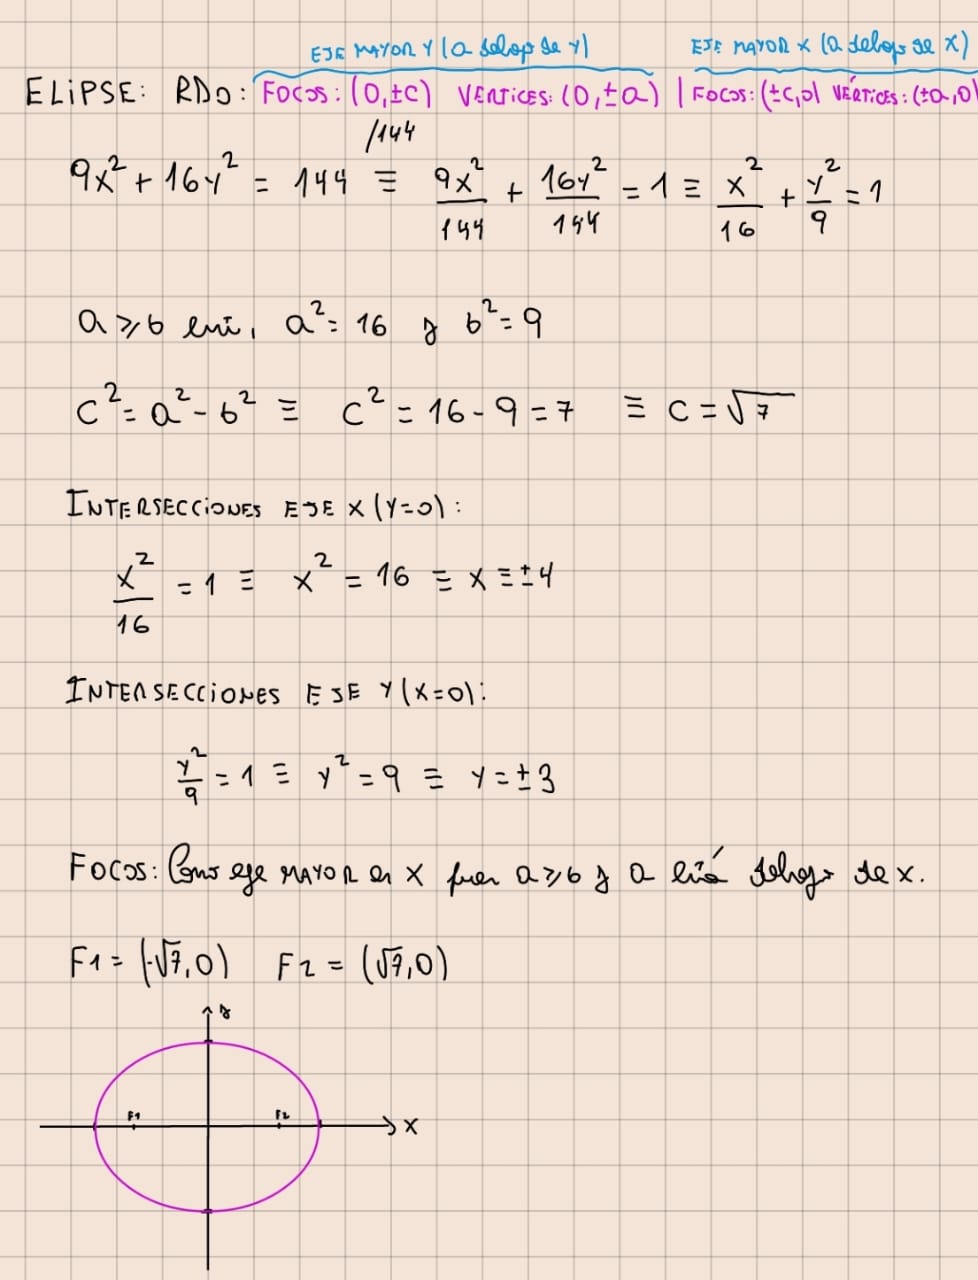 EJE MAYOR Y (a debajo de y) EJE MAYOR X (a debajo de x)
ELIPSE: RDO: FOCOS: (0,±c) VÉRTICES: (0,±a) | FOCOS: (±c,0) VÉRTICES: (±a,0)
/144
9x² + 16y² = 144 ≡ 9x²/144 + 16y²/144 = 1 ≡ x²/16 + y²/9 = 1
a ≥ b a² = 16 y b² = 9
c² = a² - b² ≡ c² = 16 - 9 = 7 ≡ c = √7
INTERSECCIONES EJE X (Y=0):
x²/16 = 1 ≡ x² = 16 ≡ x ≡ ±4
INTERSECCIONES EJE Y (X=0):
y²/9 = 1 ≡ y² = 9 ≡ y = ±3
FOCOS: Como eje MAYOR en X pues a ≥ b y a está debajo de x.
F1 = (-√7,0) F2 = (√7,0)
y
F1 F2
X